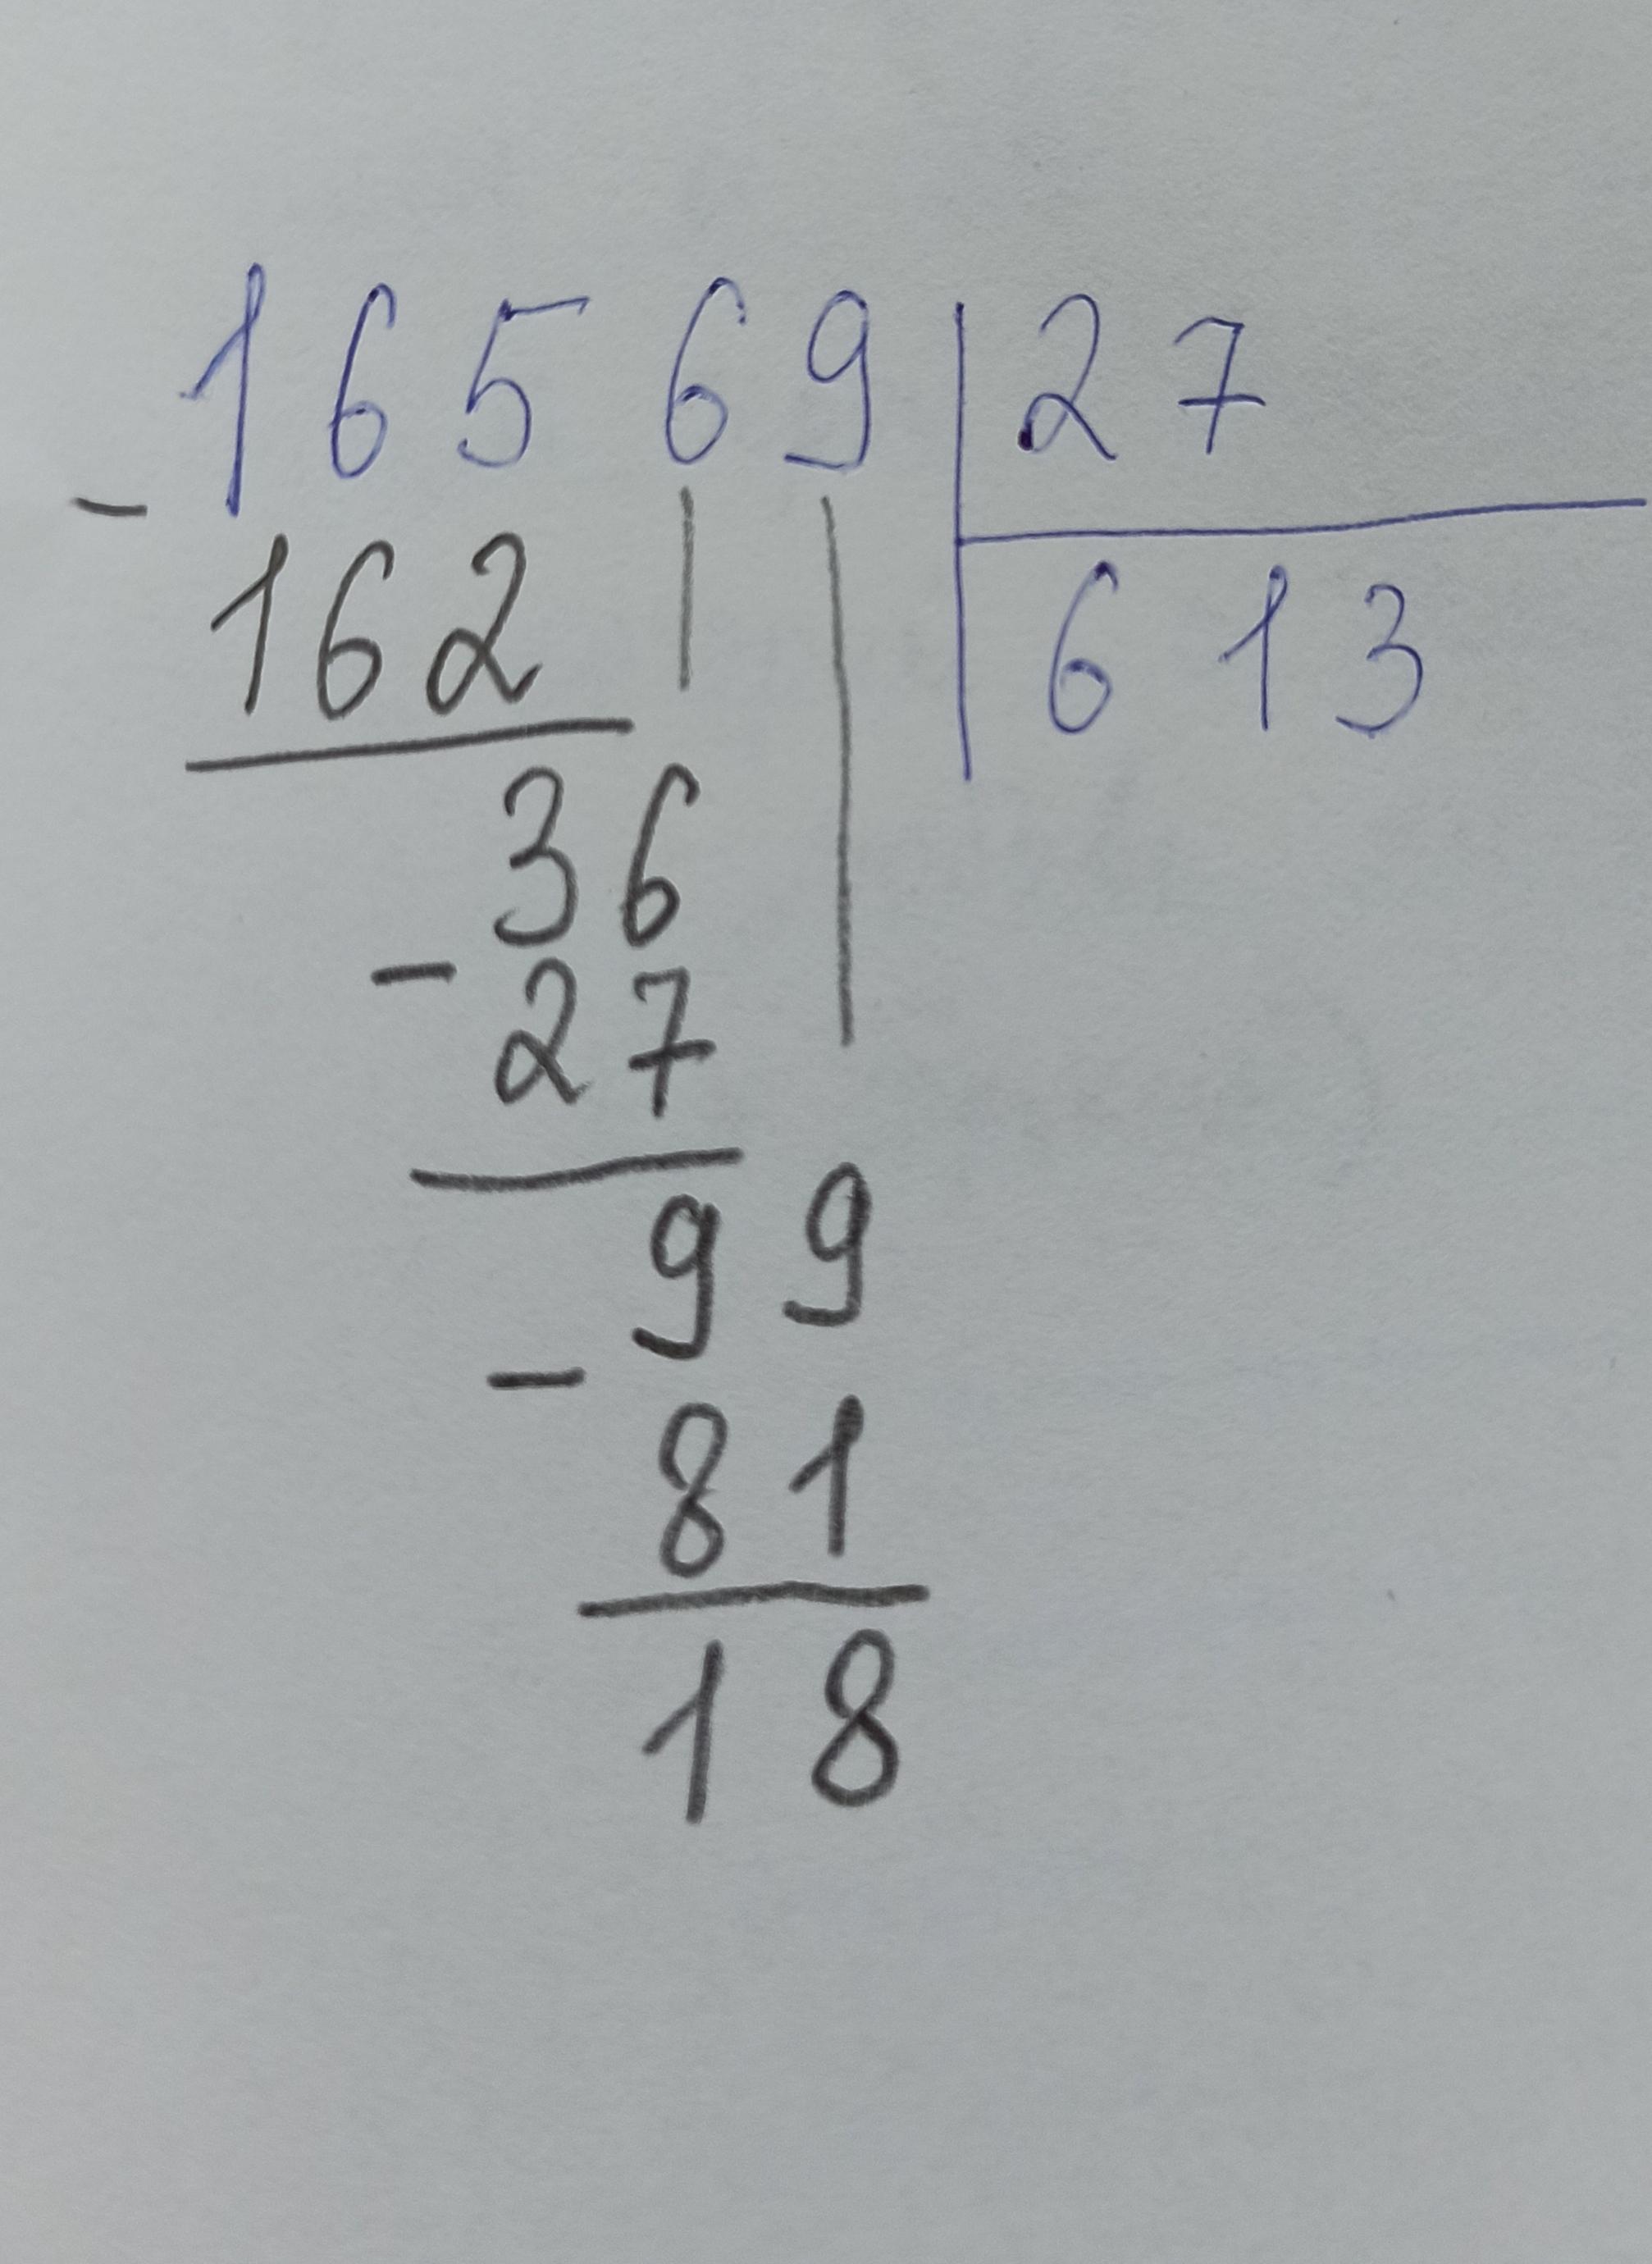 16569 27
- 162 613
36
- 27
99
- 81
18